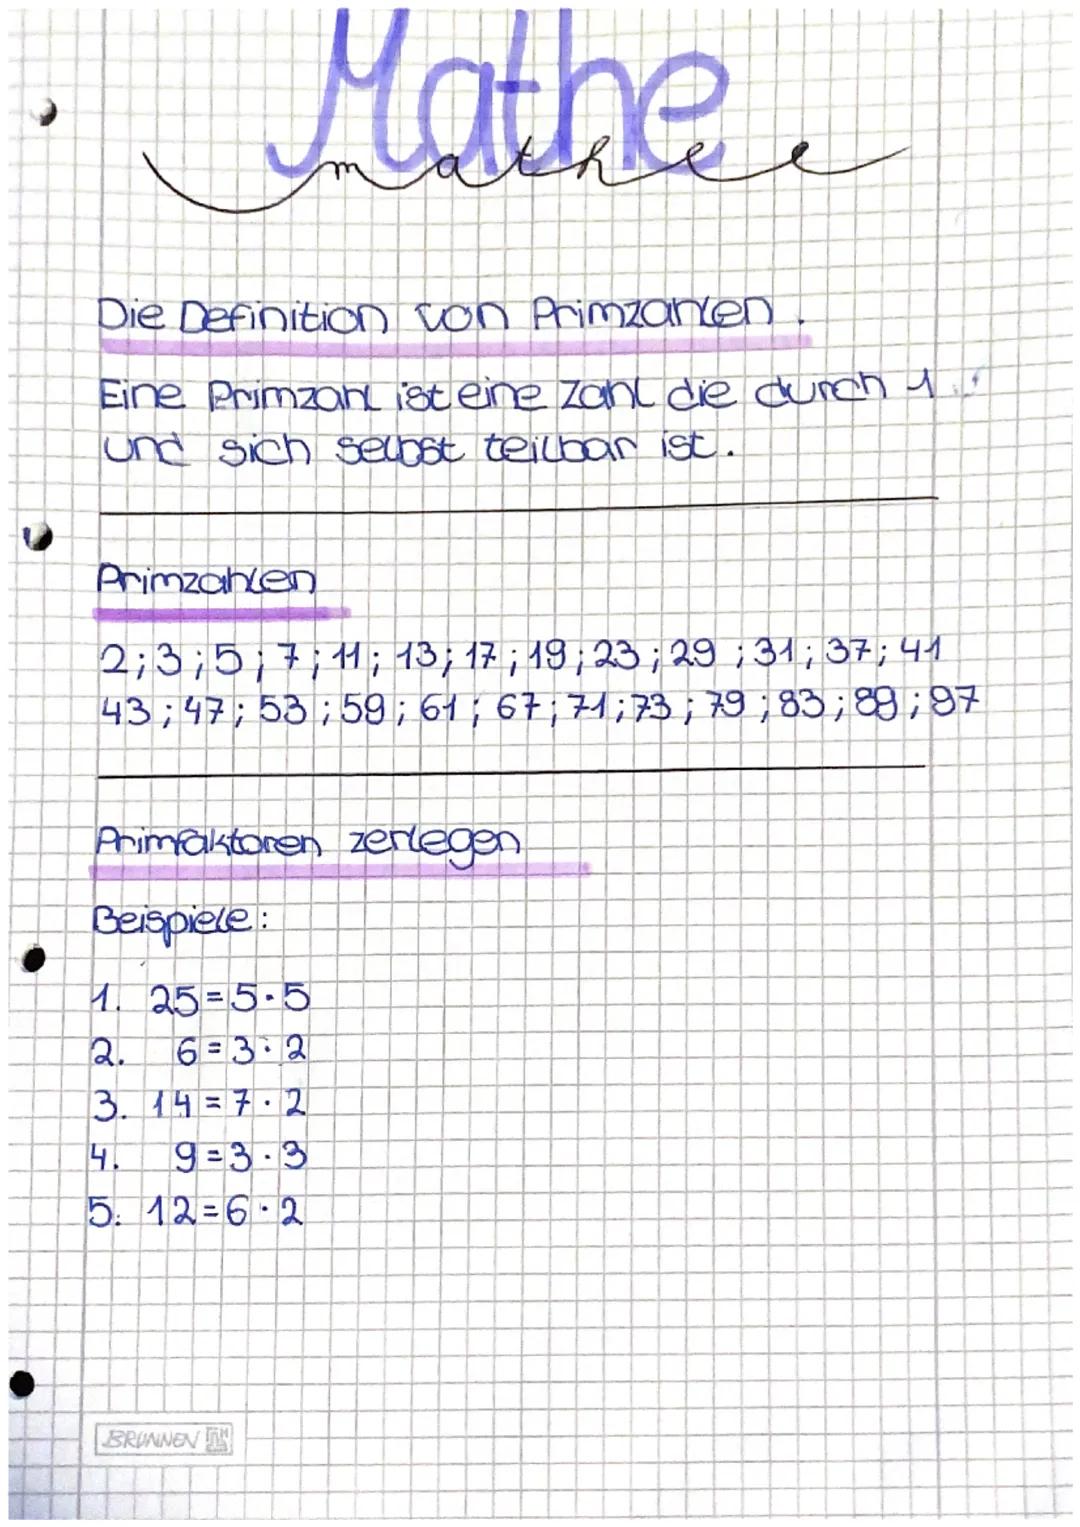 Mathe
mathee
Die Definition von Primzahlen.
Eine Primzahl ist eine Zahl die durch 1
und sich selbst teilbar ist.
Primzahlen
2; 3; 5; 7; 11; 13; 17; 19; 23; 29; 31; 37; 41
43; 47; 53; 59; 61; 67; 71; 73; 79; 83; 89; 97
Primfaktoren zerlegen
Beispiele:
1. 25 = 5 · 5
2. 6 = 3 · 2
3. 14 = 7 · 2
4. 9 = 3 · 3
5. 12 = 6 · 2
BRUNNEN